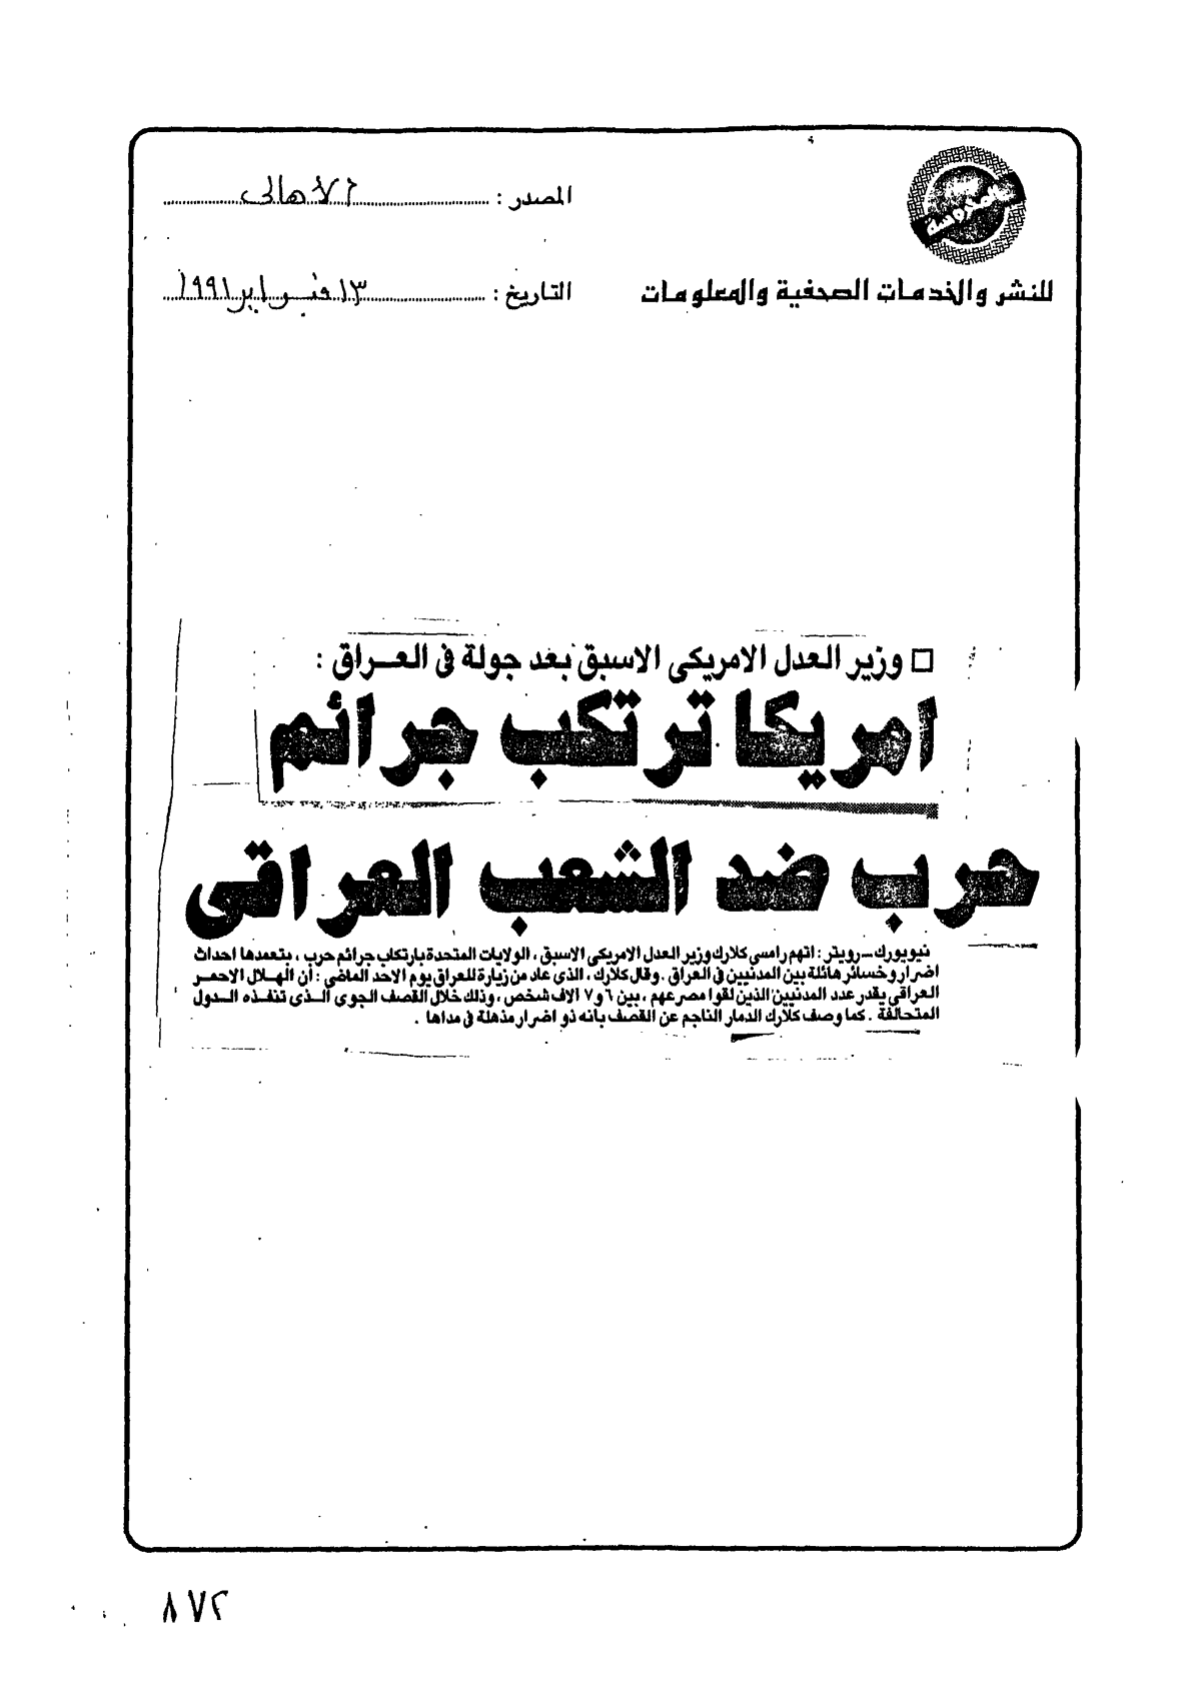 المصدر : الأهالى
للنشر والخدمات الصحفية والمعلومات
التاريخ : ١٣ فبراير ١٩٩١
□ وزير العدل الامريكى الاسبق بعد جولة فى العراق :
امريكا ترتكب جرائم
حرب ضد الشعب العراقى
نيويورك ـ رويتر : اتهم رامسى كلارك وزير العدل الامريكى الاسبق ، الولايات المتحدة بارتكاب جرائم حرب ، بتعمدها احداث
اضرار وخسائر هائلة بين المدنيين فى العراق . وقال كلارك ، الذى عاد من زيارة للعراق يوم الاحد الماضى : أن الهلال الاحمر
العراقى يقدر عدد المدنيين الذين لقوا مصرعهم ، بين ٦ و٧ الاف شخص ، وذلك خلال القصف الجوى الذى تنفذه الدول
المتحالفة . كما وصف كلارك الدمار الناجم عن القصف بانه ذو اضرار مذهلة فى مداها .
٨٧٢